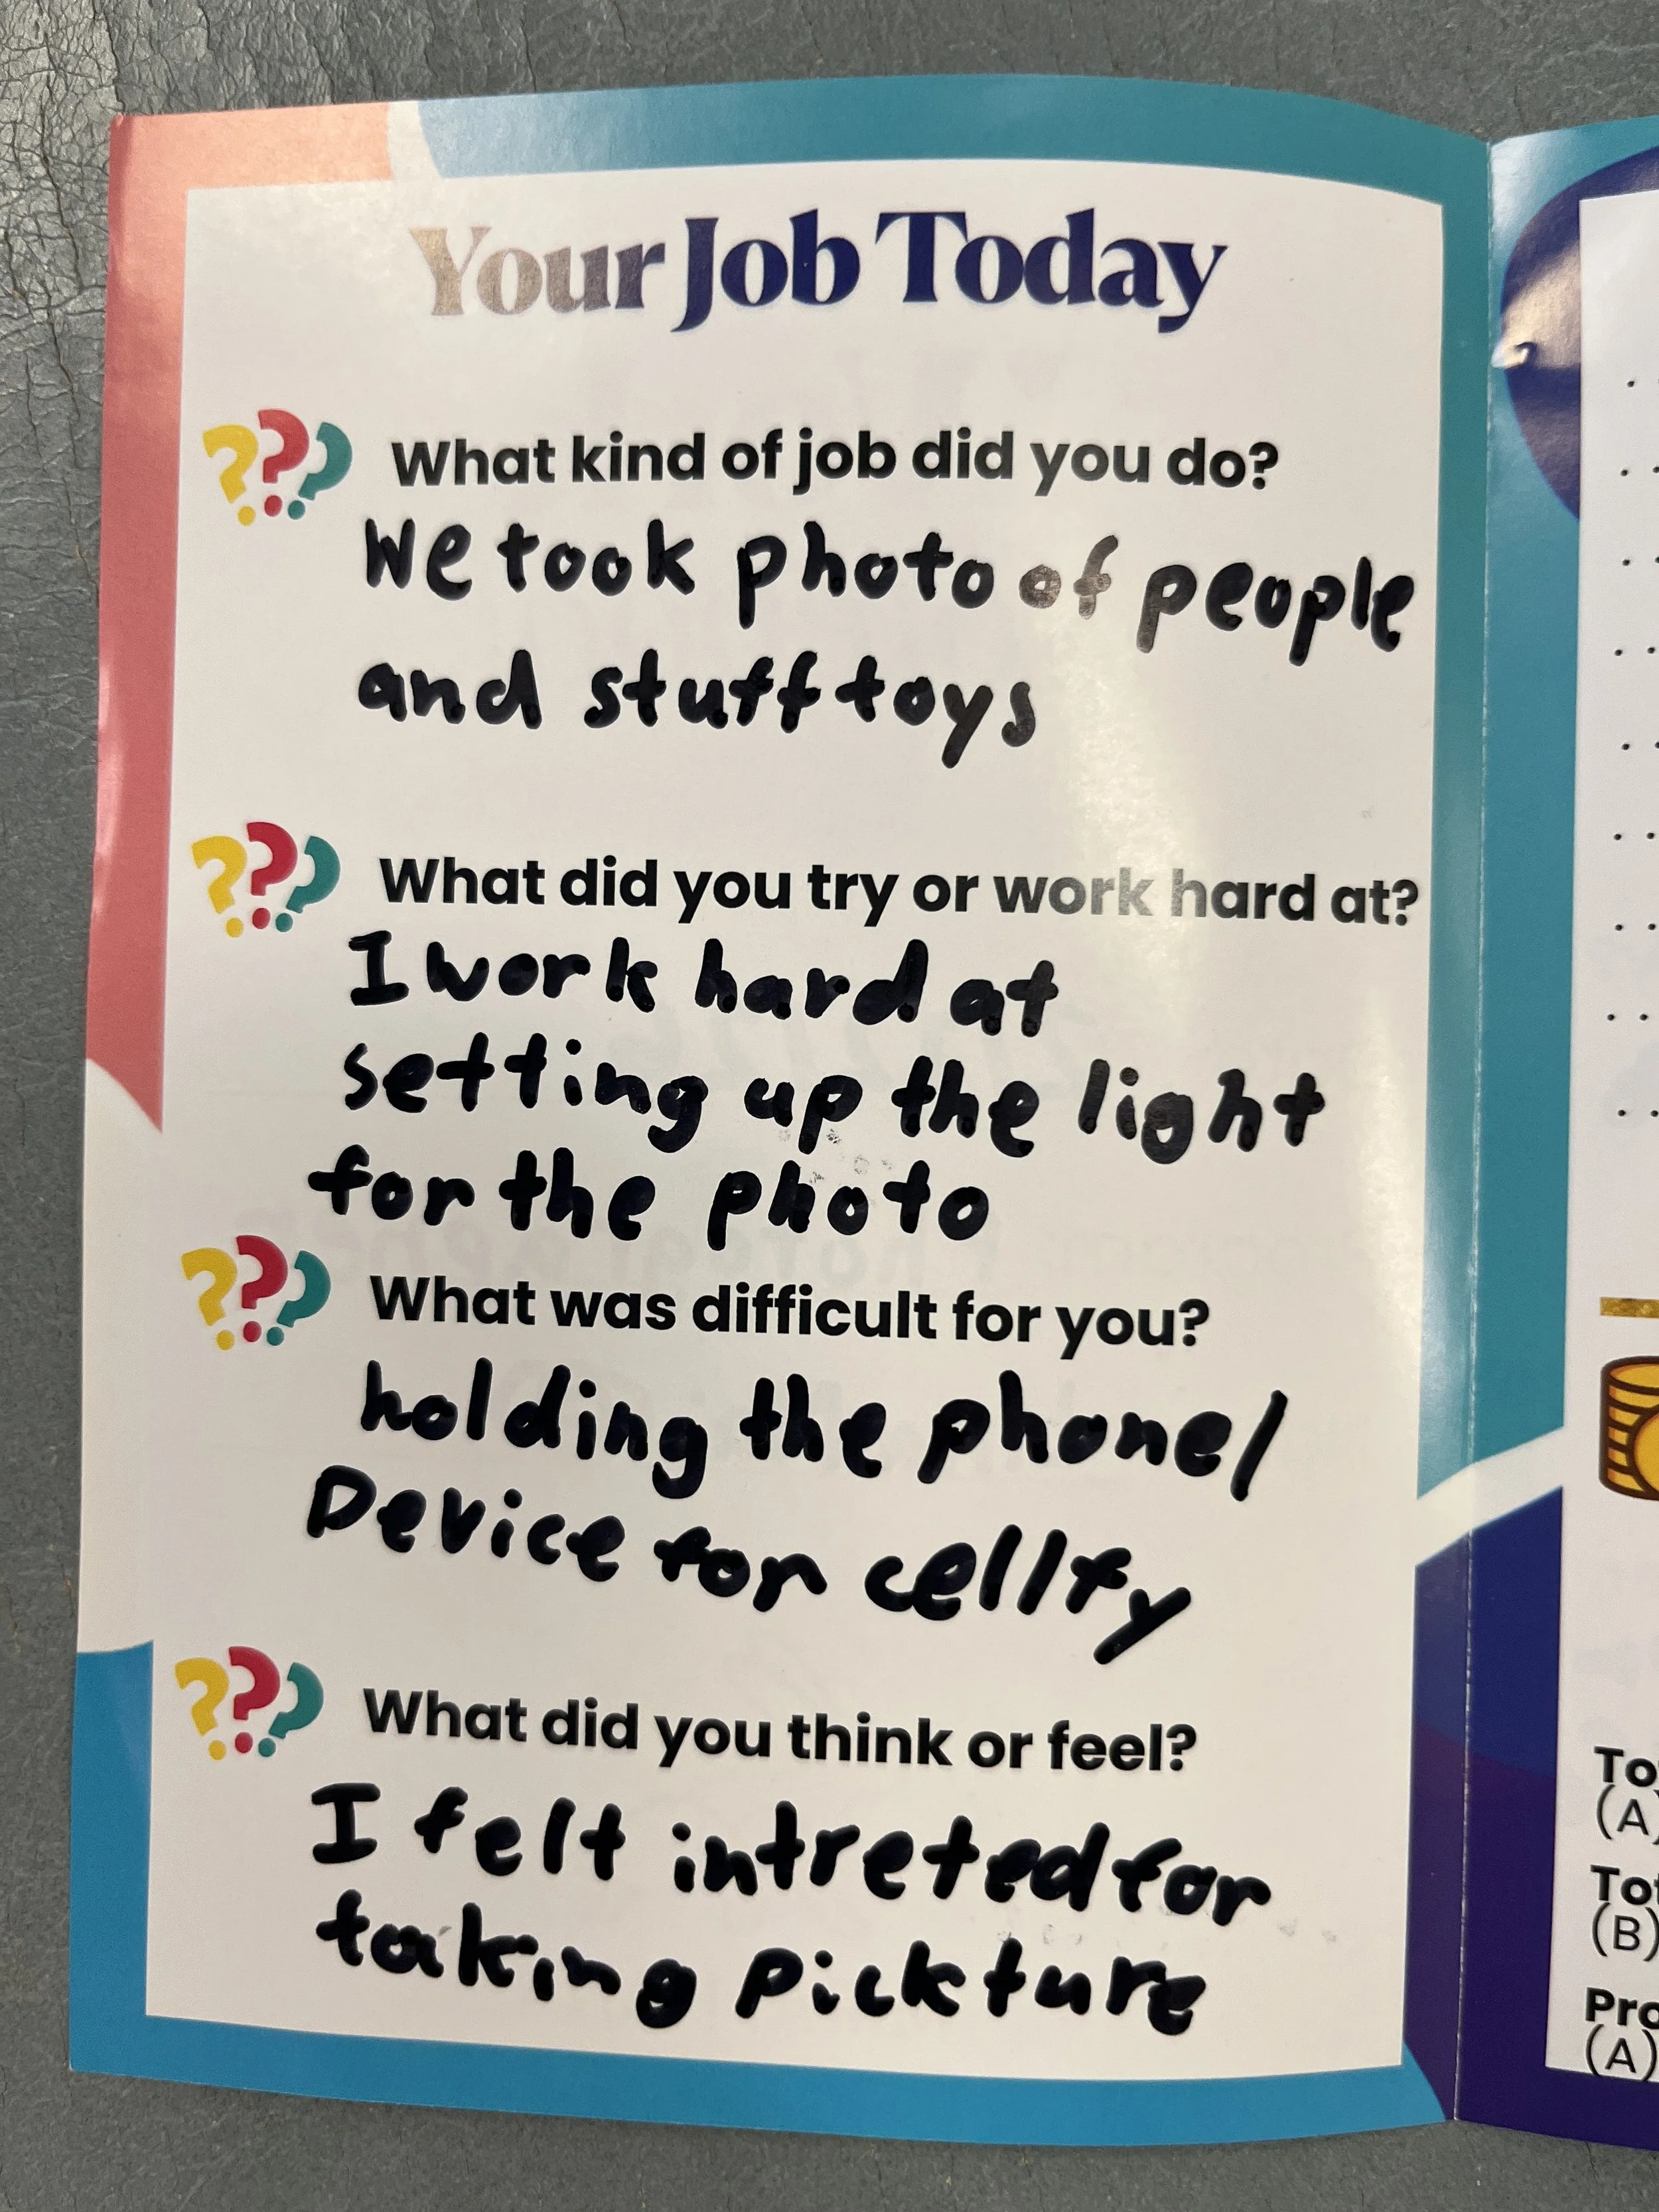 Your Job Today
??? What kind of job did you do?
We took photo of people
and stuff toys
??? What did you try or work hard at?
I work hard at
setting up the light
for the photo
??? What was difficult for you?
holding the phone/
Device for cellfy
??? What did you think or feel?
I felt intreted for
taking pickture
(A)
(B)
(A)